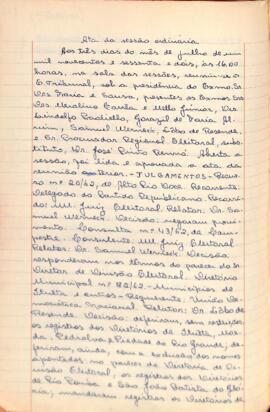 Ata da sessão ordinária
Aos três dias do mês de julho de um
mil novecentos e sessenta e dois, às 16,00
horas, na sala das sessões, reuniu-se o
E. Tribunal, sob a presidência do Exmo. Sr.
Des. Faria e Sousa, presentes os Exmos. Srs.
Des. Merolino Corrêa e Mello Júnior, Drs.
Lindolfo Paoliello, Gorazil de Faria Al-
vim, Samuel Werneck, Lôbo de Resende,
e Sr. Procurador Regional Eleitoral, subs-
tituto, Dr. José Pinto Renó. Aberta a
sessão, foi lida e aprovada a ata da
reunião anterior. JULGAMENTOS - Recur-
so nº 20/62, de Alto Rio Doce. Recorrente:
Delegado do Partido Republicano. Recorri-
do: MM. Juiz Eleitoral. Relator: Dr. Sa-
muel Werneck. Decisão: negaram provi-
mento. Consulta nº 43/62, de Cam-
pestre. Consulente: MM. Juiz Eleitoral.
Relator: Dr. Samuel Werneck. Decisão:
responderam nos têrmos do parecer do Sr.
Diretor de Divisão Eleitoral. Diretório
Municipal nº 80/62 - Municípios de
e outros. Requerente: União De-
mocrática Nacional. Relator: Dr. Lôbo de
Resende. Decisão: deferiram, sem restrições,
os registros dos diretórios de
Pedralva e Piedade do Rio Grande, de-
feriram, ainda, com a exclusão dos nomes
apontados no parecer da Diretoria de Di-
visão Eleitoral, os registros dos diretórios
de Rio Pomba e São João Batista do Gló-
ria; mandaram registrar os diretórios de